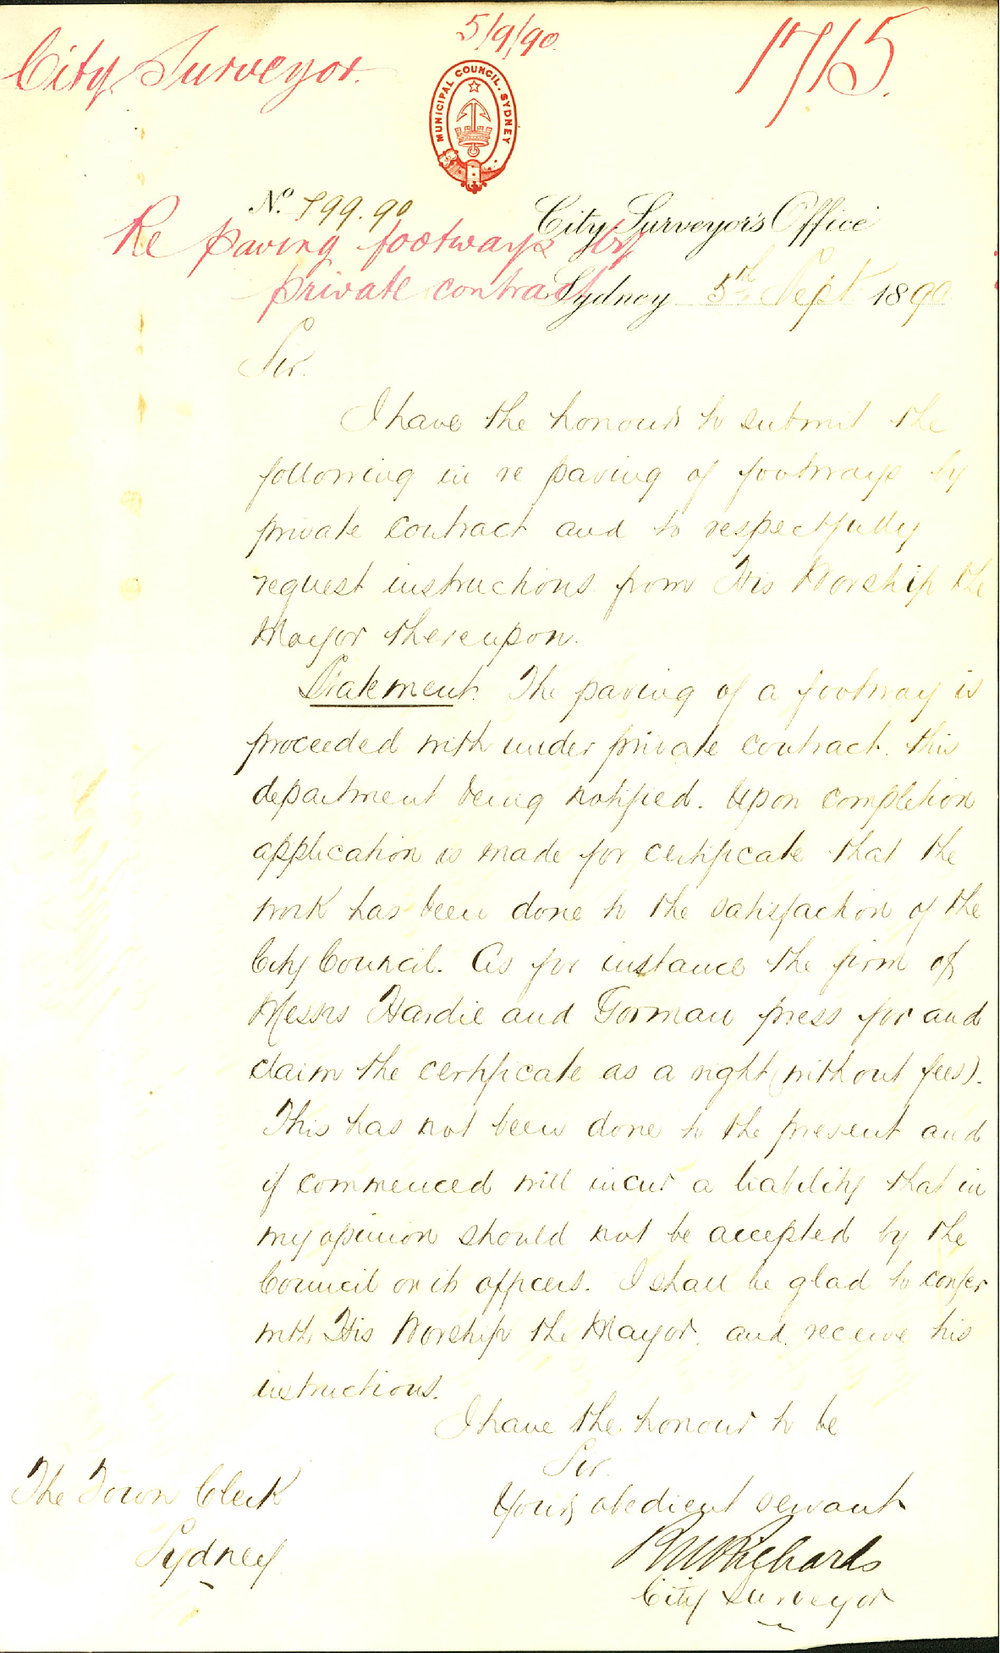 5/9/90.
City Surveyor.
1715.
MUNICIPAL COUNCIL. SYDNEY
No. 799.90
City Surveyor's Office
Re paving footways by
private contract
Sydney 5th Sept 1890
Sir.
I have the honour to submit the
following in re paving of footways by
private contract and to respectfully
request instructions from His Worship the
Mayor thereupon.
Statement. The paving of a footway is
proceeded with under private contract. this
department being notified. Upon completion
application is made for certificate that the
work has been done to the satisfaction of the
City Council. As for instance the firm of
Messrs Hardie and Gorman press for and
claim the certificate as a right (without fees).
This has not been done to the present and
if commenced will incur a liability that in
my opinion should not be accepted by the
Council or its officers. I shall be glad to confer
with His Worship the Mayor. and receive his
instructions.
I have the honour to be
Sir.
Your obedient servant
RW Richards
City Surveyor
The Town Clerk
Sydney